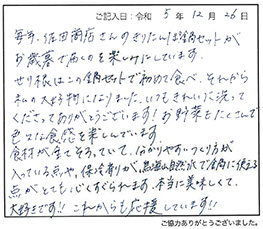 ご記入日：令和 5年 12月 26日
毎年、佐田商店さんのきりたんぽ鍋セットが
お歳暮で届くのを楽しみにしています。
せり根はこの鍋セットで初めて食べ、それから
私の大好物になりました。いつもきれいに洗って
くださってありがとうございます！お野菜もたくさんで
色々な食感を楽しんでいます。
食材が全てそろっていて、分かりやすいつくり方が
入っている点や、保冷剤が、鳥海山自然水で鍋に使える
点がとても心くすぐられます。本当に美味しくて、
大好きです!! これからも応援しています!!
ご協力ありがとうございました。